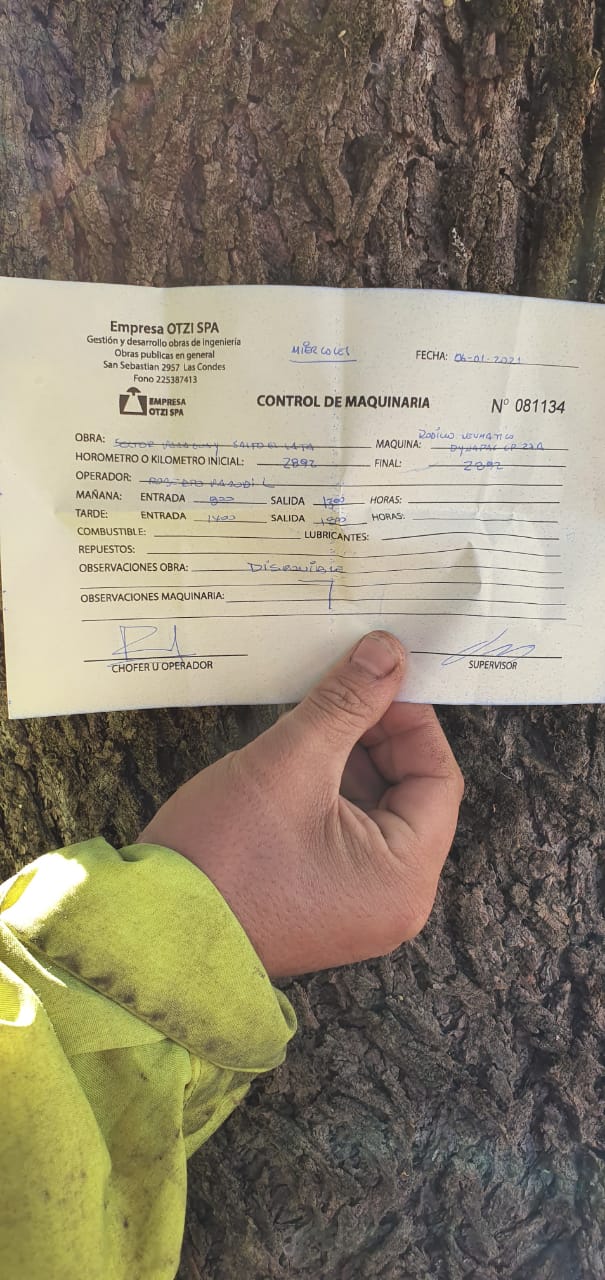 Empresa OTZI SPA
Gestión y desarrollo obras de ingeniería
Obras publicas en general
San Sebastian 2957 Las Condes
Fono 225387413
EMPRESA
OTZI SPA
MIERCOLES
FECHA: 06-01-2021
CONTROL DE MAQUINARIA
Nº 081134
OBRA: SECTOR PARAGUAY SALTO EL LAJA
MAQUINA: RODILLO NEUMATICO
DYNAPAC CP 224
HOROMETRO O KILOMETRO INICIAL: 2892 FINAL: 2892
OPERADOR:
MAÑANA: ENTRADA 800 SALIDA 1300 HORAS:
TARDE: ENTRADA 1400 SALIDA 1800 HORAS:
COMBUSTIBLE: LUBRICANTES:
REPUESTOS:
OBSERVACIONES OBRA: DISPONIBLE
OBSERVACIONES MAQUINARIA:
CHOFER U OPERADOR
SUPERVISOR